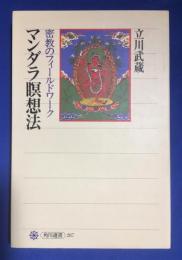 立川武蔵
密教のフィールドワーク
マンダラ瞑想法
角川選書 287